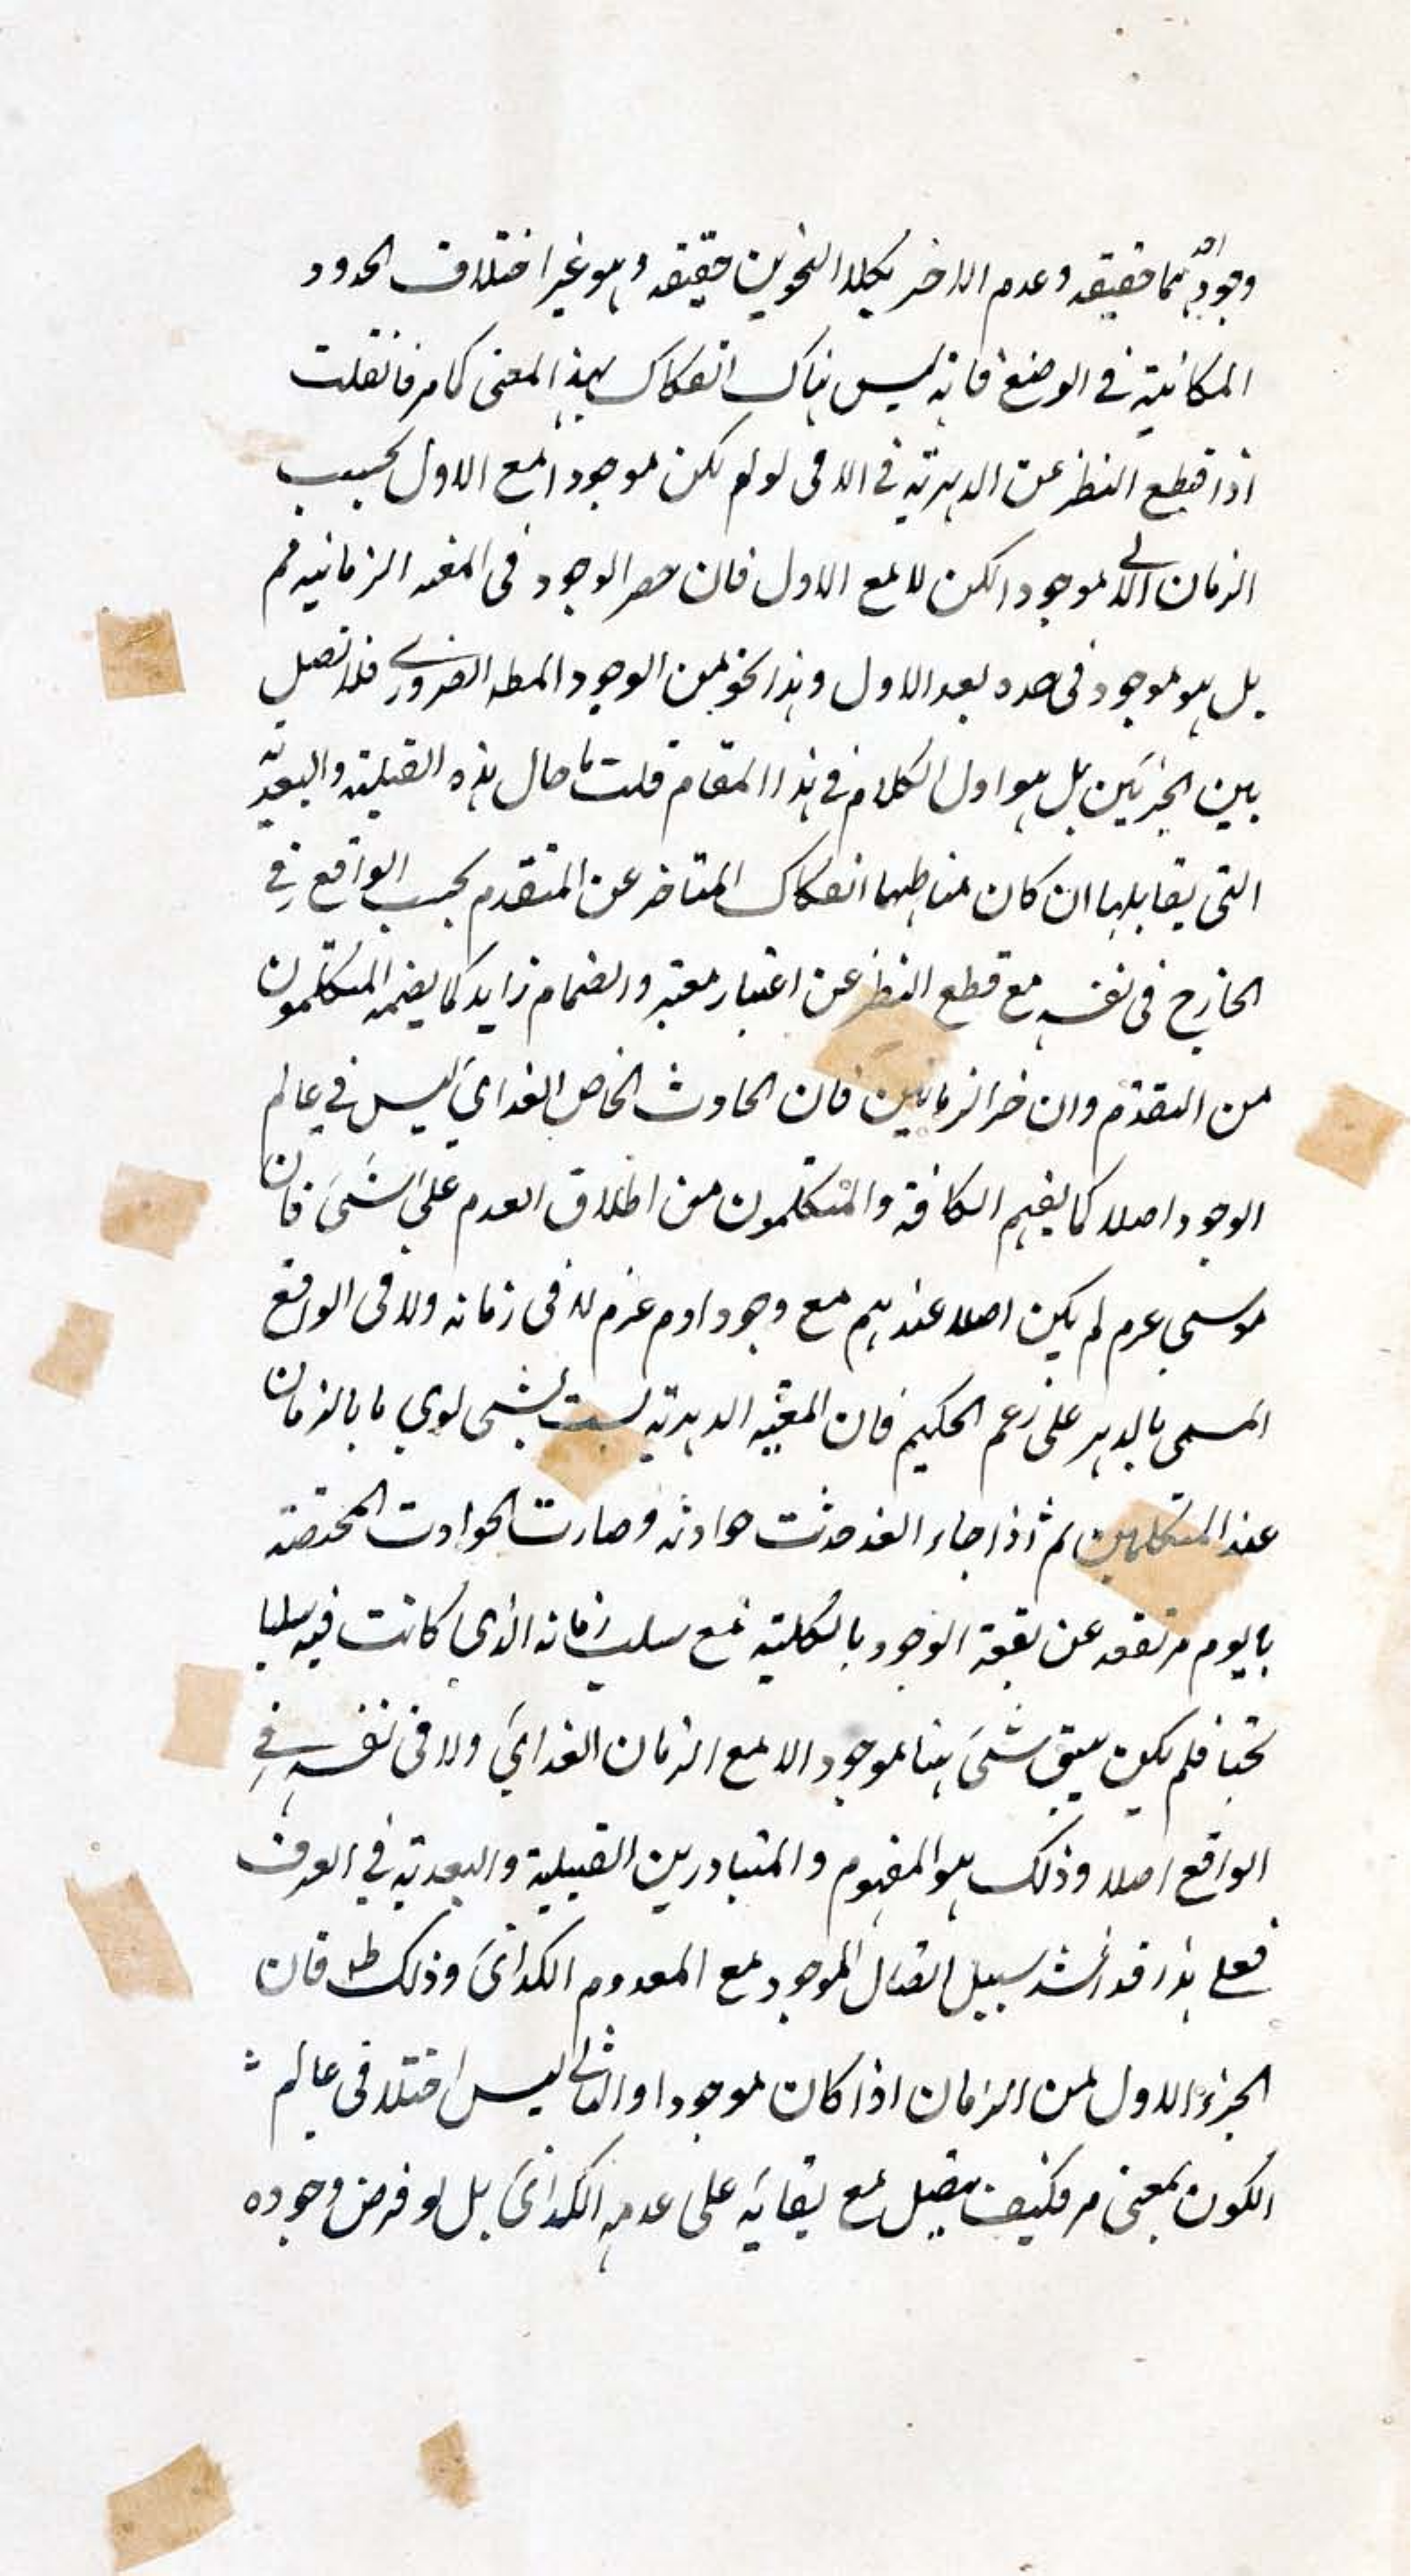 وجود احدهما حقيقه وعدم الاخر بكلا النحوين حقيقه وهو غير اختلاف الحدود
المكانية في الوضع فانه ليس هناك انفكاك بهذا المعنى كما مر فان قلت
اذا قطع النظر عن الدهرية في اللاحق لو لم يكن موجودا مع الاول بحسب
الزمان موجود لكن لا مع الاول فان حصر الوجود في المعيه الزمانيه مم
بل هو موجود في حده بعد الاول وهذا نحو من الوجود المطه الضروري فلا تصل
بين الجزئين بل هو اول الكلام في هذا المقام قلت ما حال هذه القبلية والبعدية
التي يقابلها ان كان مناطهما انفكاك المتاخر عن المتقدم بحسب الواقع في
الخارج في نفسه مع قطع النظر عن اعتبار معتبر وانضمام زايد كما يضمه المتكلمون
من التقدم وان خر الزمانين فان الحادث الخاص الغدايي ليس في عالم
الوجود اصلا كما يفهم الكافة والمتكلمون من اطلاق العدم على الشئ فان
موسى عم لم يكن اصلا عندهم مع وجود ادم عم لا في زمانه ولا في الواقع
المسمى بالدهر على زعم الحكيم فان المعيه الدهرية ليست بشئ سوى ما بالزمان
عند المتكلمين ثم اذا جاء الغد حدثت حوادثه وصارت الحوادث المختصة
باليوم مرتفعه عن بقعة الوجود بالكلية مع سلب زمانه الذي كانت فيه سلبا
بحتا فلم يكن يبق شئ هنا موجودا لا مع الزمان الغدايي ولا في نفسه في
الواقع اصلا وذلك هو المفهوم والمتبادر بين القبيلية والبعدية في العرف
فعلى هذا قد انسد سبيل اتصال الموجود مع المعدوم الكذائي وذلك ظ فان
الجزء الاول من الزمان اذا كان موجودا والثاني ليس اصلا في عالم
الكون بمعنى مر فكيف يتصل مع بقايه على عدمه الكذائي بل لو فرض وجوده